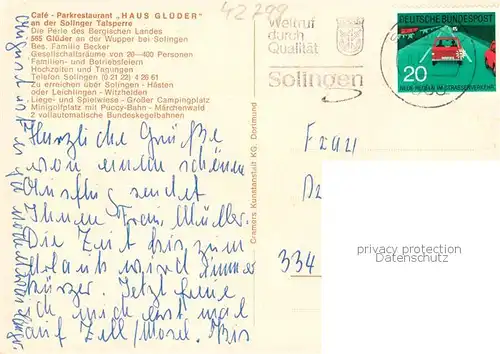 Café - Parkrestaurant „HAUS GLÜDER"
an der Solinger Talsperre
Die Perle des Bergischen Landes
565 Glüder an der Wupper bei Solingen
Bes. Familie Becker
Gesellschaftsräume von 20—400 Personen
Familien- und Betriebsfeiern
Hochzeiten und Tagungen
Telefon Solingen (0 21 22) 4 26 61
Zu erreichen über Solingen - Hästen
oder Leichlingen - Witzhelden
Liege- und Spielwiese - Großer Campingplatz
Minigolfplatz mit Puccy-Bahn - Märchenwald
2 vollautomatische Bundeskegelbahnen
Herzliche Grüße
von einem schönen
Ausflug sendet
Ihnen Frau Müller.
Die Zeit bis zum
Urlaub wird immer
kürzer. Jetzt freue
ich mich erst mal
auf Zell/Mosel. Bis
August
Cramers Kunstanstalt KG, Dortmund
42799
Weltruf
durch
Qualität
Solingen
DEUTSCHE BUNDESPOST
20
NEUE REGELN IM STRASSENVERKEHR
Frau
334
privacy protection
Datenschutz